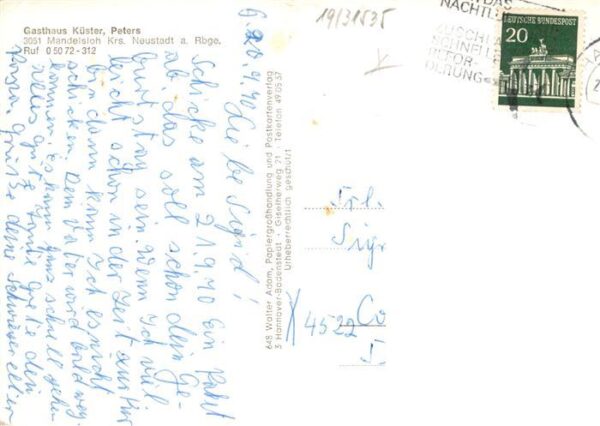 Gasthaus Küster, Peters
3051 Mandelsloh Krs. Neustadt a. Rbge.
Ruf 0 50 72-312
20.9.70 Liebe Sigrid!
Schicke am 21.9.70 ein Paket
ab, das soll schon dein Ge-
burtstag sein. Wenn ich viel
leicht schon in der Zeit zur Kur
bin dann kann ich es nicht
schicken. Dein Vater wird bald weg
kommen, es kann ganz schnell gehen
alles gute Tante
grüße deine Schwiegereltern
648 Walter Adam, Papiergroßhandlung und Postkartenverlag
3 Hannover-Badenstedt · Giselherweg 21 · Telefon 49 05 37
Urheberrechtlich geschützt
19/31535
NACHTL
ZUSCHLA
SCHNELLE
BEFÖR-
DERUNG
DEUTSCHE BUNDESPOST
20
Frl.
Sigr
4522 Co